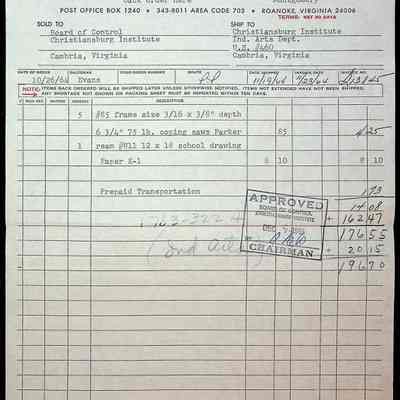 POST OFFICE BOX 1240 • 343-8011 AREA CODE 703 • ROANOKE, VIRGINIA 24006
TERMS: NET 30 DAYS
SOLD TO
SHIP TO
Board of Control
Christiansburg Institute
Christiansburg Institute
Ind. Arts Dept.
U.S. #460
Cambria, Virginia
Cambria, Virginia
DATE OF ORDER
SALESMAN
ROUTE
DATE SHIPPED
INVOICE DATE
INVOICE NO.
10/26/64 Evans PP 11/19/64
NOTE: ITEMS BACK ORDERED WILL BE SHIPPED LATER UNLESS OTHERWISE NOTIFIED. ITEMS NOT EXTENDED HAVE NOT BEEN SHIPPED. ANY SHORTAGE NOT SHOWN ON PACKING SHEET MUST BE REPORTED WITHIN TEN DAYS.
DESCRIPTION
5 #85 frame size 3/16 x 3/8" depth
6 3/4" 75 lb. coping saws Parker 85 4 25
1 ream #811 12 x 18 school drawing
Paper E-1 8 10 8 10
Prepaid Transportation 1 73
14 08
763-322 + 162 47
176 55
(Ind arts) + 20 15
196 70
APPROVED
BOARD OF CONTROL
CHRISTIANSBURG INSTITUTE
DEC 7 1964
CHAIRMAN